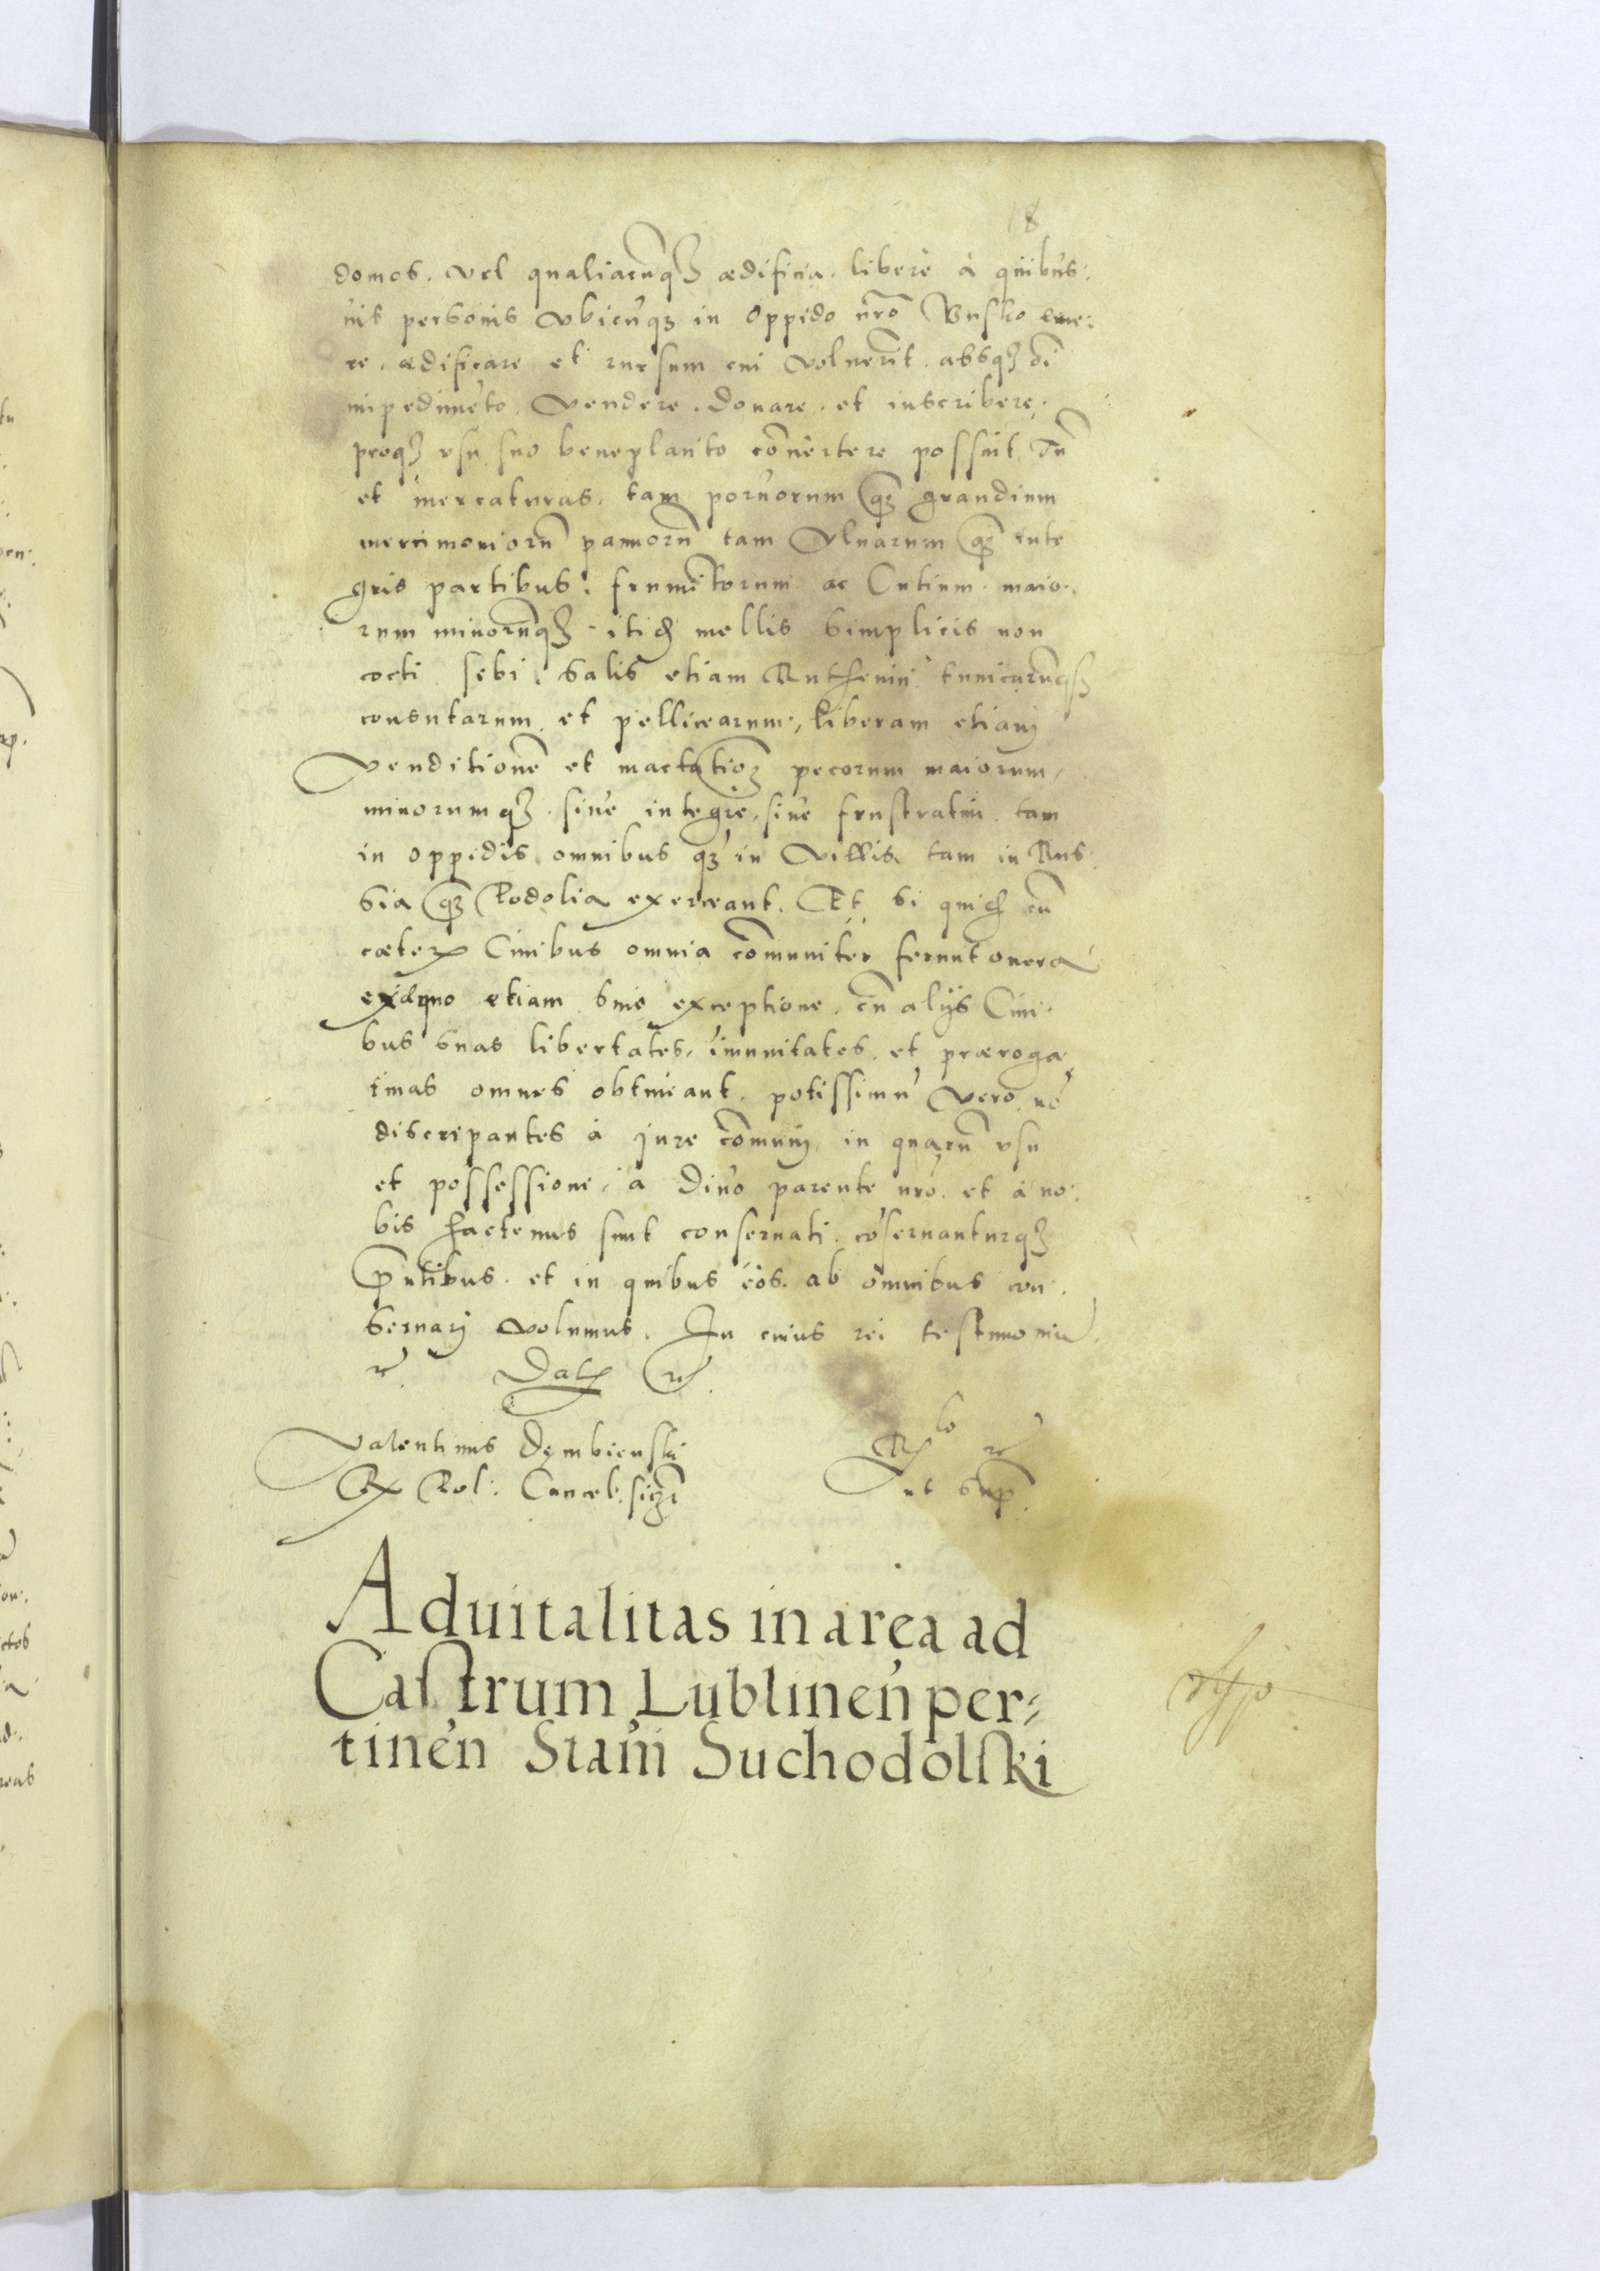 18
domos. vel qualiacūqꝫ ædificia. liberè à quibus:
uis personis vbicūqꝫ in Oppido nr̄o Busko eme:
re. ædificare et rursum cui voluerīt. absqꝫ oī
īnpedimēto. vendere. donare. et inscribere.
proqꝫ vsu suo beneplacito cōuertere possint.
et mercaturas. tam paruorum qꝫ grandium
mercimoniorū pannorū tam vlnarum qꝫ inte
gris partibus. frumētorum ac Cutium. maio.
rum minorūqꝫ. itidē mellis simplicis non
cocti sebi. salis etiam Ruthenici tunicarūqꝫ
consutarum et pellicearum, liberam etiam
venditionē et mactatioꝫ pecorum maiorum,
minorumqꝫ. siue integre, siue frustratim tam
in oppidis omnibus qꝫ in villis. tam in Rus
sia qꝫ Podolia exerceant. Et si quidē cū
cæteris Ciuibus omnia cōmuniter ferunt onera
exæquo etiam sine exceptione. cū alijs Ciui.
bus suas libertates, īmunitates. et præroga
tiuas omnes obtineant. potissimū vero nō
discrepantes à jure cōmuni in quarū vsu
et possessione. a Diuo parente nrō. et à no:
bis hactenus sunt conseruati. cōseruanturqꝫ
pn̄tibus. et in quibus eos. ab omnibus con.
seruarj volumus. In cuius rei testimoniū
Datꝫ
Valentinus Dembienski
R Pol: Cancel. sigī
Rlo
ut supꝫ
Aduitalitas in area ad
Castrum Lublineń per⸗
tineń Stani Suchodolski